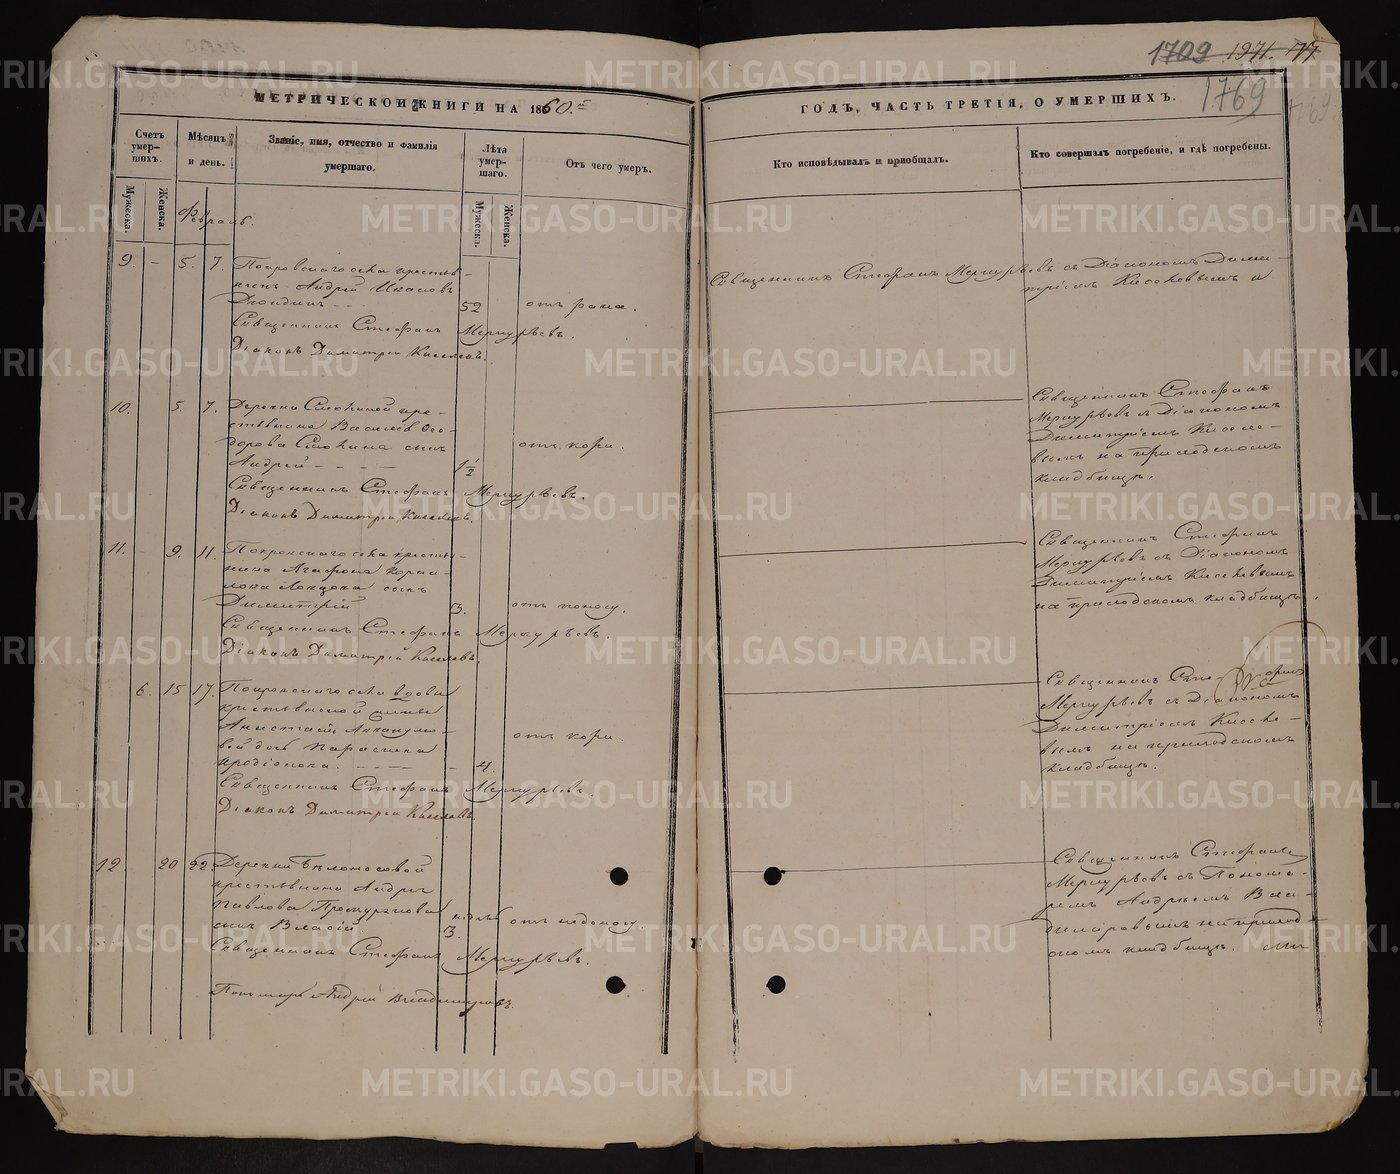 1709 1971. 177
1769
МЕТРИЧЕСКОЙ КНИГИ НА 1860.е
ГОДЪ, ЧАСТЬ ТРЕТІЯ, О УМЕРШИХЪ.
Счетъ умер-шихъ.
Мужеска.
Женска.
Мѣсяцъ и день.
Званіе, имя, отчество и фамилія умершаго.
Лѣта умер-шаго.
Мужеска.
Женска.
Отъ чего умеръ.
Кто исповѣдывалъ и пріобщалъ.
Кто совершалъ погребеніе, и гдѣ погребены.
Февраль.
9. - 5. 7. Покровскаго села крестья-
нинъ Андрей Ивановъ
52 отъ рака.
Священникъ Стефанъ Меркурьевъ.
Діаконъ Димитрій Киселевъ.
Священникъ Стефанъ Меркурьевъ съ Діакономъ Дими-
тріемъ Киселевымъ и
10. 5. 7. Деревни Слокиной кре-
стьянина Василья Ѳео-
дорова Слокина сынъ
Андрей - - - - 1 1/2 отъ кори.
Священникъ Стефанъ Меркурьевъ.
Діаконъ Димитрій Киселевъ.
Священникъ Стефанъ
Меркурьевъ съ Діакономъ
Димитріемъ Киселе-
вымъ на приходскомъ
кладбищѣ.
11. - 9. 11. Покровскаго села кресть-
янина Агафона Корни-
лова сынъ
Димитрій 3. отъ поносу.
Священникъ Стефанъ Меркурьевъ.
Діаконъ Димитрій Киселевъ.
Священникъ Стефанъ
Меркурьевъ съ Діакономъ
Димитріемъ Киселевымъ
на приходскомъ кладбищѣ.
6. 15 17. Покровскаго села вдовы
крестьянской жены
Анастасіи
дочь Параскева
4. отъ кори.
Священникъ Стефанъ Меркурьевъ.
Діаконъ Димитрій Киселевъ.
Священникъ Стефанъ
Меркурьевъ съ Діакономъ
Димитріемъ Киселе-
вымъ на приходскомъ
кладбищѣ.
12. 20 22. Деревни Бѣлоносовой
крестьянина Андрея
Павлова Проскурякова
сынъ Власій 3. отъ недоноску.
Священникъ Стефанъ Меркурьевъ.
Пономарь Андрей Владиміровъ.
Священникъ Стефанъ
Меркурьевъ съ Понома-
ремъ Андреемъ Вла-
диміровымъ на приход-
скомъ кладбищѣ.
METRIKI.GASO-URAL.RU